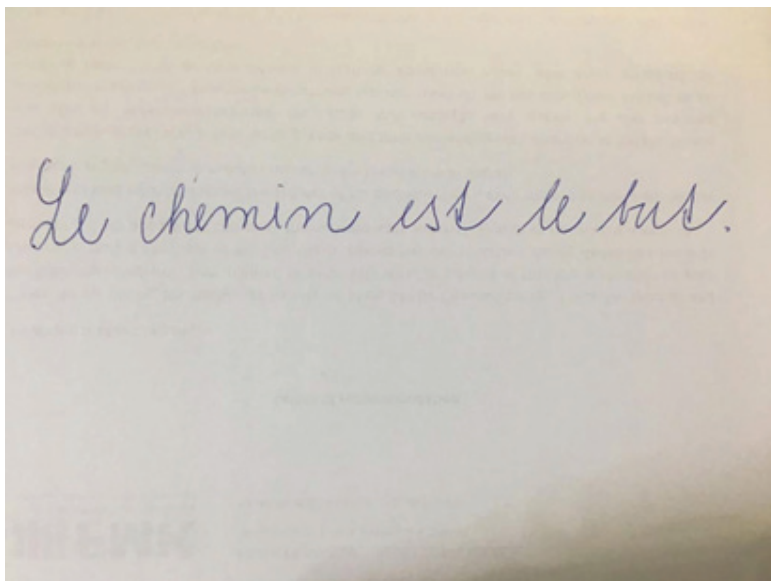 Le chemin est le but.